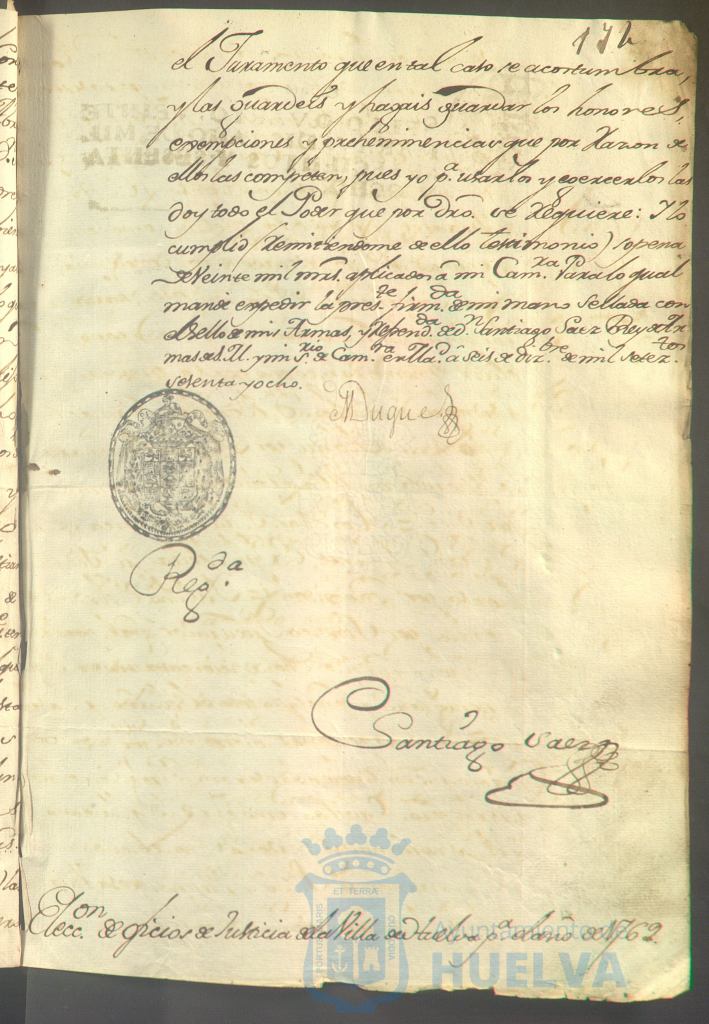 171
el Juramento que en tal caso se acostumbra,
y las guardeis y hagais guardar los honores,
exempciones y preheminencias que por Razon de
ellos las competen, pues yo p.ª usarlos y exercerlos las
doy todo el Poder que por Dro. se Requiere: Y lo
cumplid (Remitiendome de ello testimonio) sopena
de Veinte mil mrs. aplicados â mi Cam.ra Para lo qual
mande expedir la pres.te firm.da de mi mano sellada con
el Sello de mis Armas, y Refrend.da de D.n Santiago Saez Rey de Ar
mas de S. M. y mi s.rio de Cam.ra en Ma.d â seis de diz.bre de mil setez.tos
sesenta y ocho.
Duque
Reg.da
Santiago Saez
Elecc.on de oficios de Justicia de la Villa de Huelva p.ª el año de 1769.
ET TERRA
PORTUS MARIS
Ayuntamiento de
HUELVA